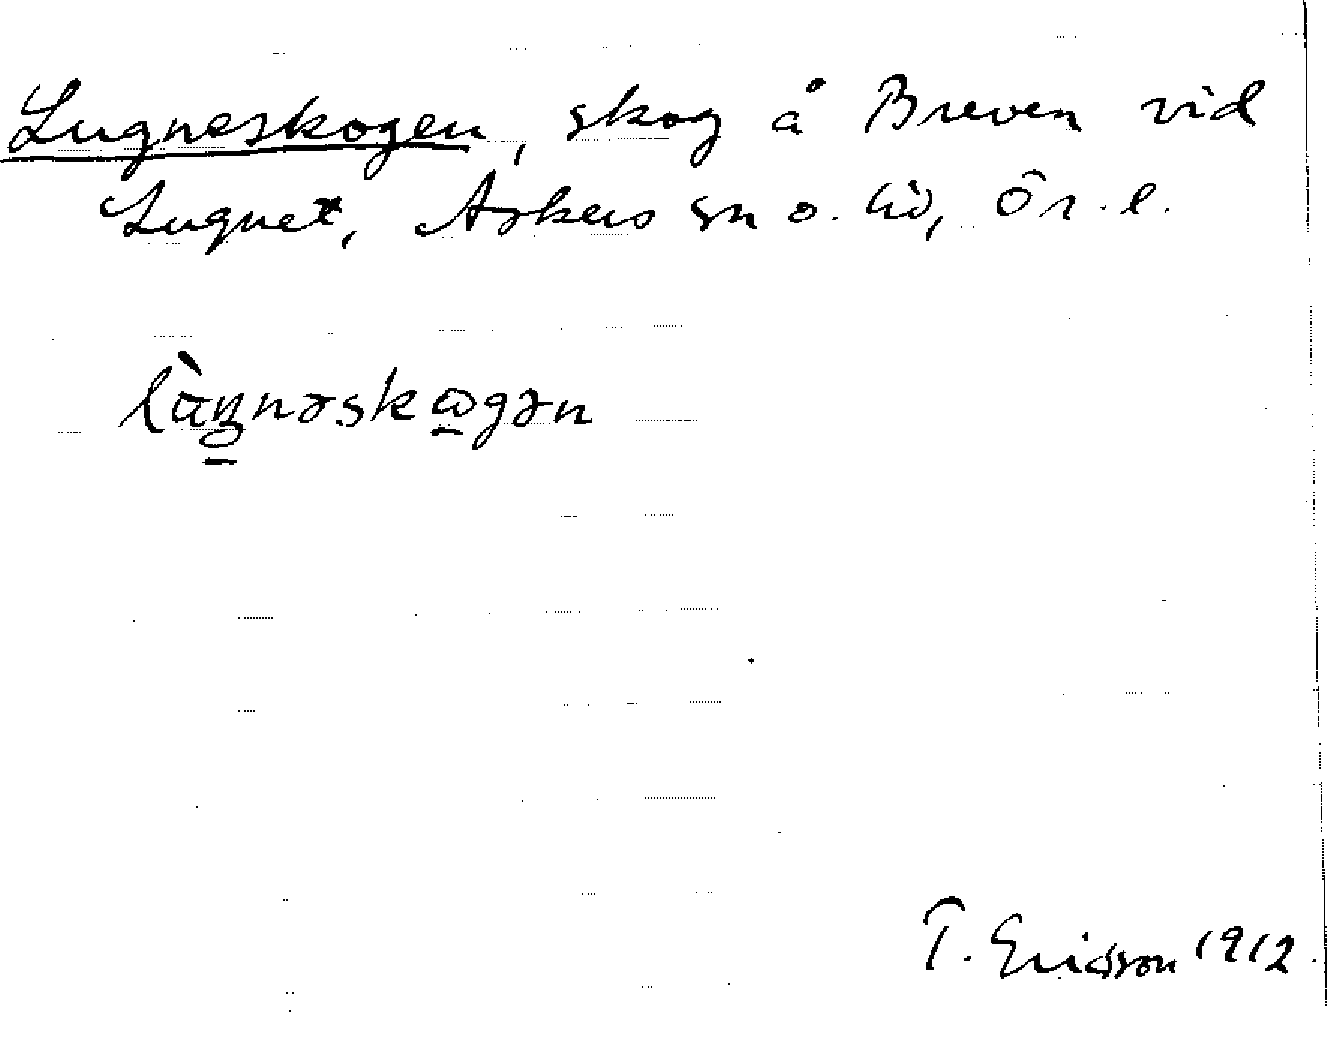 Lugneskogen, skog å Breven vid
Lugnet, Askers sn o. hd, Ör. l.
T. Ericsson 1912.